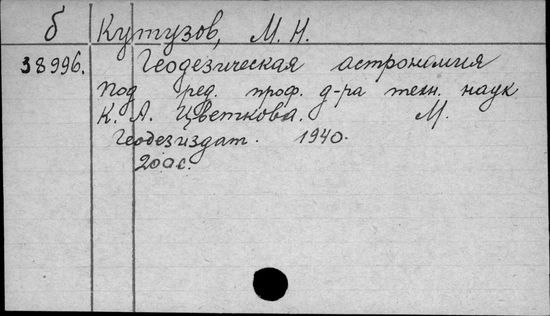 б Кутузов, М. Н.
38996. Геодезическая астрономия
под ред. проф. д-ра техн. наук
К. А. Цветкова. М.
Геодезиздат. 1940.
200 с.